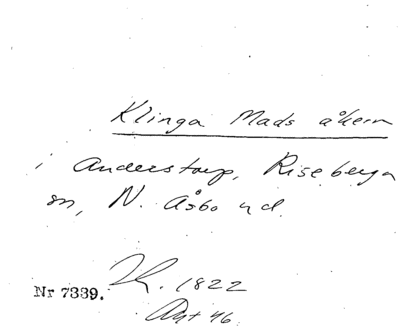 Klinga Mads åkern
i Anderstorp, Riseberga
sn, N. Åsbo hd.
Nr 7339. 1822
Akt 46